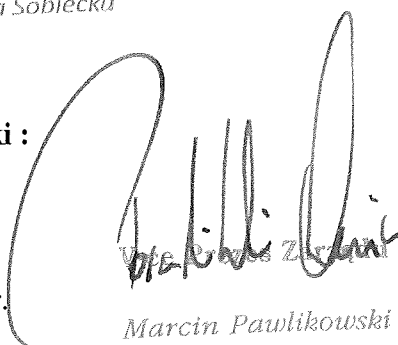 a Sobiecka
ki :
Vice Prezes Zarządu
Marcin Pawlikowski